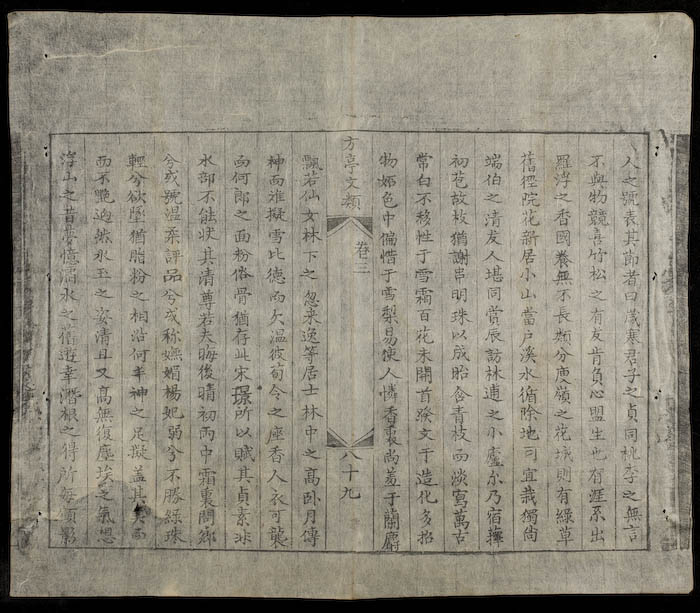 人之號表其節者曰歲寒君子之貞同桃李之無言
不與物競喜竹松之有友肯負心盟生也有涯系出
羅浮之香國養無不長類分庾嶺之花城則有綠草
舊徑院花新居小山當戶溪水循除地司宜栽獨尚
端伯之清友人堪同賞辰訪林逋之小廬尔乃宿蘀
初苞故枝猶謝串明珠以成胎含青枝而淡寫萬古
常白不移性于雪霜百花未開首發文于造化多招
物妬色中偏惜于雪梨易使人憐香裏尚羞于蘭麝
方亭文類
卷三
八十九
飄若仙女林下之忽来逸等居士林中之高卧月傳
神而难擬雪比德而欠溫彼荀令之座香人衣可襲
而何郎之面粉俗骨猶存此宋璟所以賦其貞素非
水部不能狀其清尊若夫晦後晴初雨中霜裏閣鄉
兮或號溫柔評品兮或称嫵媚楊妃弱兮不勝綠珠
輕兮欲墜猶脂粉之相沿何丰神之足擬盖其笑而
而不艷逈然氷玉之姿清且又高無復塵埃之氣想
浮山之昔夢憶涌水之舊遊幸潛根之得所每顧影